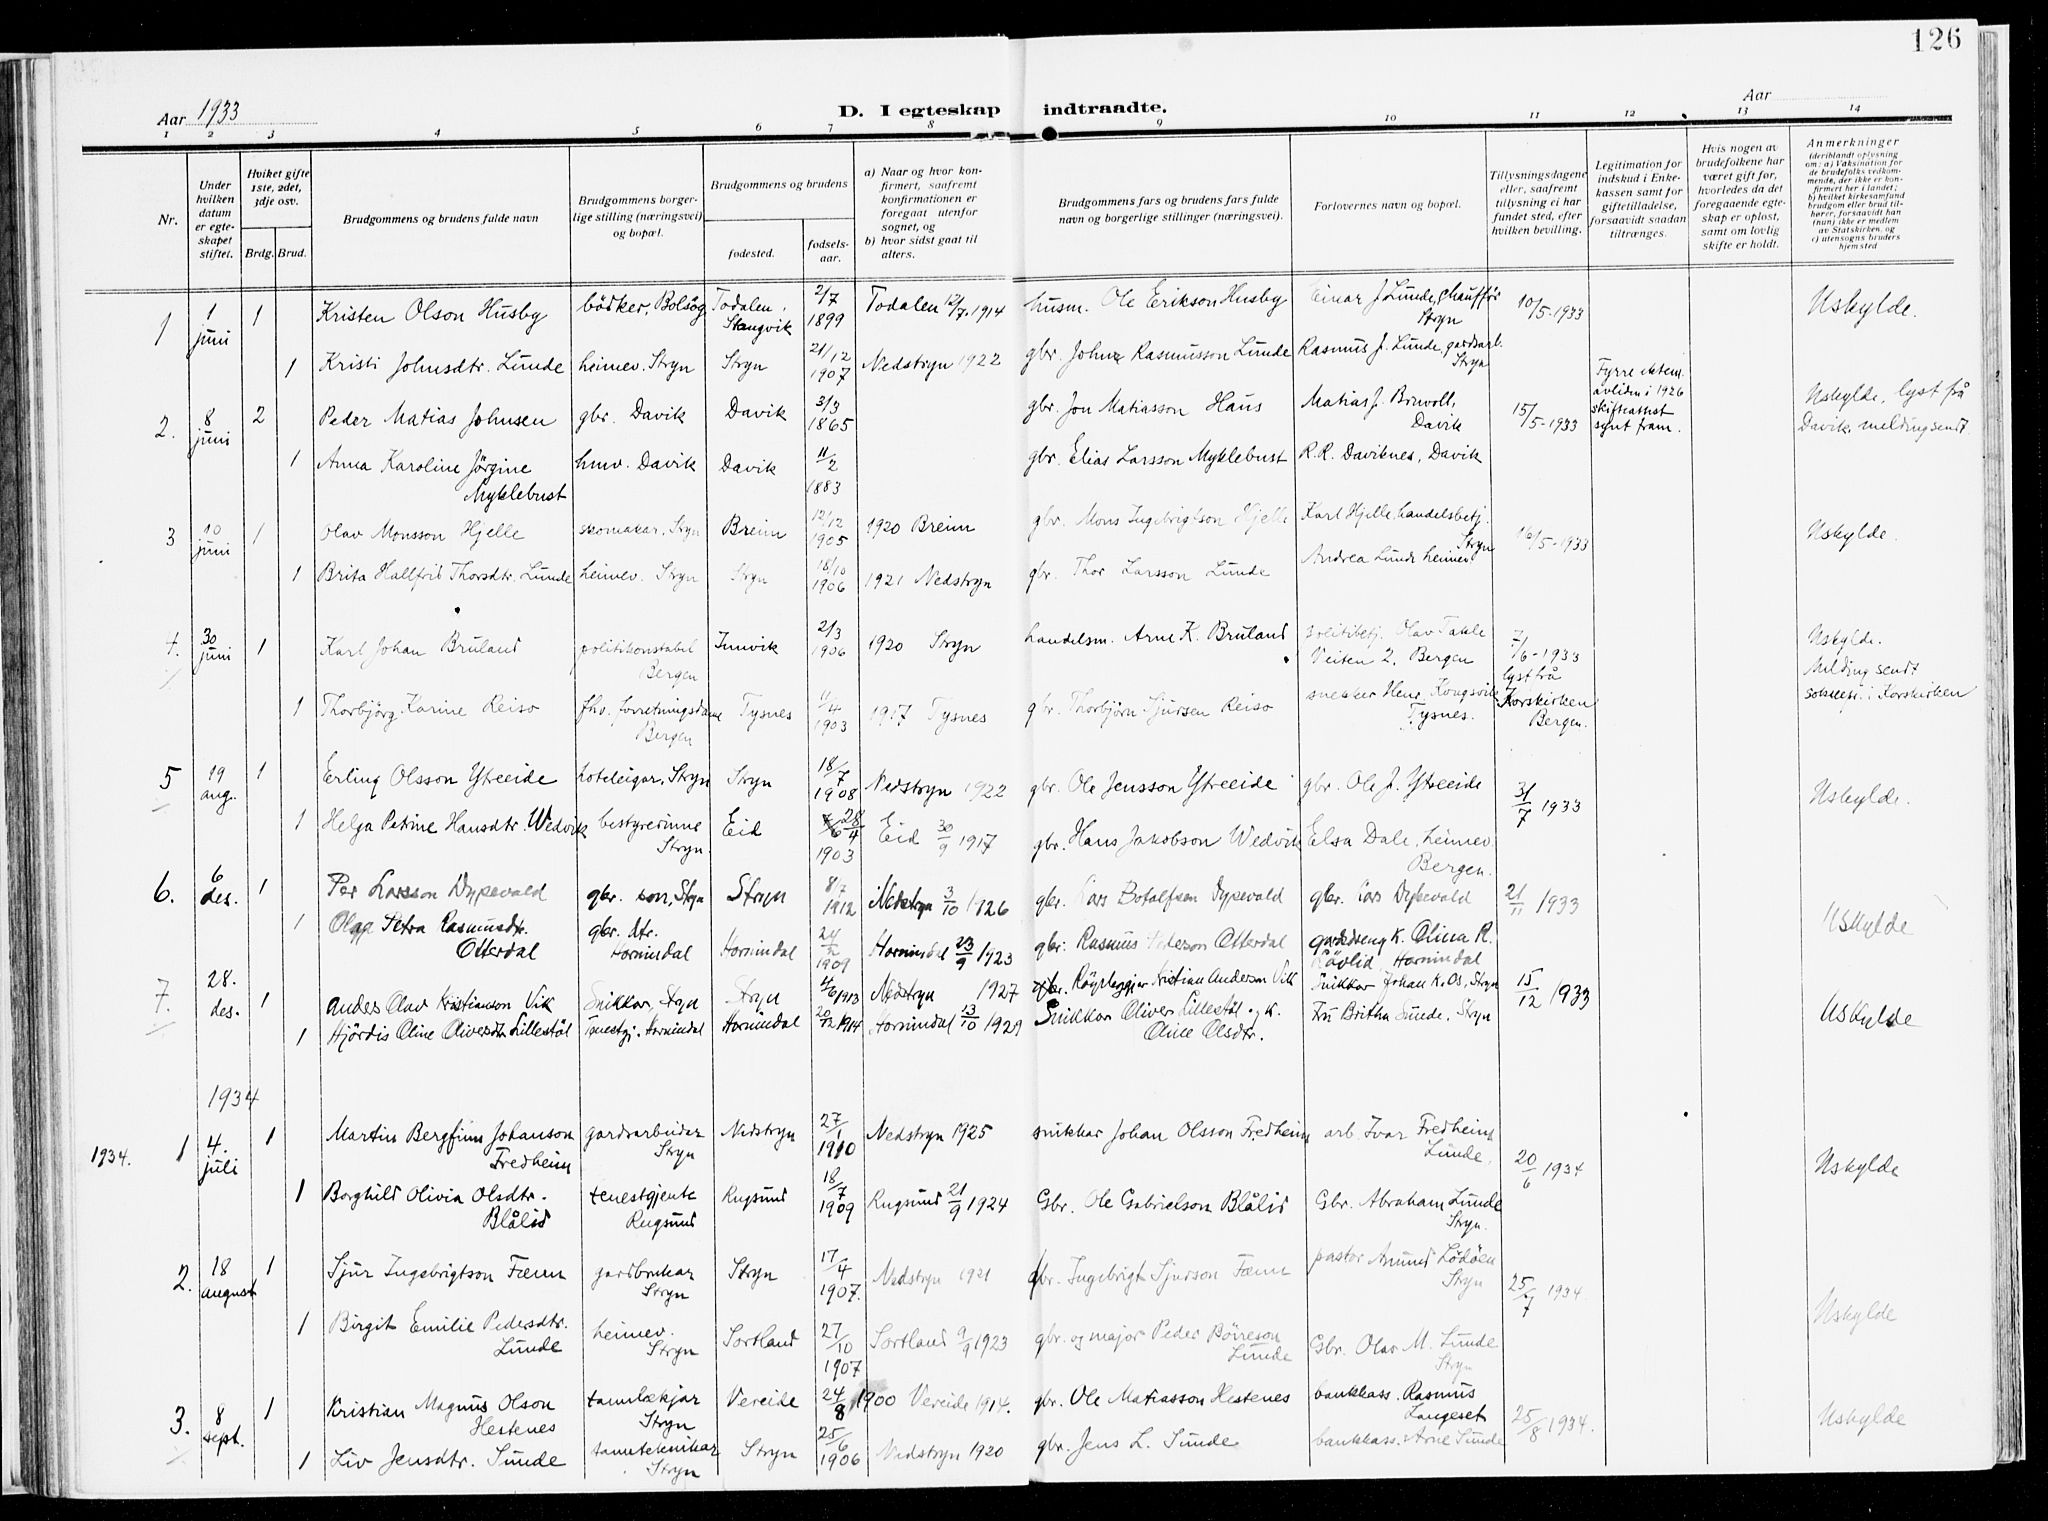 126
Aar 1933
D. I egteskap indtraadte.
Aar
1 2 3 4 5 6 7 8 9 10 11 12 13 14
Nr.
Under hvilken datum er egteskapet stiftet.
Hvilket gifte 1ste, 2det, 3dje osv.
Brdg. Brud.
Brudgommens og brudens fulde navn
Brudgommens borgerlige stilling (næringsvei) og bopæl.
Brudgommens og brudens
fødested.
fødselsaar.
a) Naar og hvor konfirmert, saafremt konfirmationen er foregaat utenfor sognet, og
b) hvor sidst gaat til alters.
Brudgommens fars og brudens fars fulde navn og borgerlige stillinger (næringsvei).
Forlovernes navn og bopæl.
Tillysningsdagene eller, saafremt tillysning ei har fundet sted, efter hvilken bevilling.
Legitimation for indskud i Enkekassen samt for giftetilladelse, forsaavidt saadan tiltrænges.
Hvis nogen av brudefolkene har været gift før, hvorledes da det foregaaende egteskap er opløst, samt om lovlig skifte er holdt.
Anmerkninger (deriblandt oplysning om: a) Vaksination for de brudefolks vedkommende, der ikke er konfirmert her i landet; b) hvilket kirkesamfund brudgom eller brud tilhører, forsaavidt han (hun) ikke er medlem av Statskirken, og c) utensogns bruders hjemsted
1 1 juni 1 Kristen Olson Husby bödker, Bolsög Todalen, Stangvik 2/7 1899 Todalen 12/7.1914 husm. Ole Erikson Husby Einar J. Lunde, chaufför Stryn 10/5-1933 Uskylde.
1 Kristi Johnsdtr. Lunde heimev. Stryn Stryn 21/12 1907 Nedstryn 1922 gbr. John Rasmusson Lunde Rasmus J. Lunde, gardsarb. Stryn
2. 8 juni 2 Peder Matias Johnsen gbr. Davik Davik 3/3 1865 gbr. Jon Matiasson Haus Matias J. Davik 15/5-1933 Fyrre ektem. avliden i 1926 skifteattest synt fram. Uskylde, lyst på Davik, melding sendt
1 Anna Karoline Jörgine Myklebust hmv. Davik Davik 11/2 1883 gbr. Elias Larsson Myklebust R.R. Daviknes, Davik
3 10 juni 1 Olav Monsson Hjelle skomakar, Stryn Breim 12/12 1905 1920 Breim gbr. Mons Ingebrigtson Hjelle Karl Hjelle, handelsbetj. Stryn 16/5-1933 Uskylde.
1 Brita Hallfrid Thorsdtr. Lunde heimev. Stryn Stryn 18/10 1906 1921 Nedstryn gbr. Thor Larsson Lunde Andrea Lunde heimev.
4. 30 juni 1 Karl Johan Bruland politikonstabel Bergen Innvik 2/3 1906 1920 Stryn handelsm. Arne K. Bruland politibetj. Olav Takle Veiten 2. Bergen 7/6-1933 lyst frå Korskirken Bergen. Uskylde. Melding sendt i Korskirken
1 Thorbjörg Karine Reiso fhv. forretningsdame Bergen Tysnes 11/4 1903 1917 Tysnes gbr. Thorbjörn Sjursen Reiso snekker Henr. Kongsvik Tysnes.
5 19 aug. 1 Erling Olsson Ytreeide hoteleigar, Stryn Stryn 18/7 1908 Nedstryn 1922 gbr. Ole Jensson Ytreeide gbr. Ole J. Ytreeide 31/7 1933 Uskylde.
1 Helga Petrine Hansdtr. Wedvik bestyrerinne Stryn. Eid 28/4 1903 Eid 30/9 1917 gbr. Hans Jakobson Wedvik Elsa Dale, heimev. Bergen.
6. 6 des. 1 Per Larsson Dypevald gbr. son, Stryn Stryn 8/7 1912 Nedstryn 3/10 1926 gbr. Lars Botolfsen Dypevald gbr. Lars Dypevald 21/11 1933 Uskylde
1 Olga Petra Rasmusdtr. Otterdal gbr. dtr. Hornindal Hornindal 24/2 1909 Hornindal 23/9 1923 gbr. Rasmus Pederson Otterdal K. Olina R. Lövlid, Hornindal
7. 28. des. 1 Anders Olav Kristianson Vik Snikkar, Stryn Stryn 4/6 1913 Nedstryn 1927 Kristian Anderson Vik Snikkar Johan K. Os, Stryn 15/12 1933 Uskylde
1 Hjördis Oline Oliversdtr Lillestöl Hornindal Hornindal 20/12 1914 Hornindal 13/10 1929 Snikkar Oliver Lillestöl og k. Oline Olsdtr. Fru Britha Sunde, Stryn
1934
1934. 1 4. juli 1 Martin Bergfinn Johanson Fredheim gardsarbeidar Stryn Nedstryn 27/1 1910 Nedstryn 1925 snikkar Johan Olsson Fredheim arb. Ivar Fredheim Lunde. 20/6 1934 Uskylde
1 Borghild Olivia Olsdtr. Blålid tenestgjente Rugsund Rugsund 18/7 1909 Rugsund 21/9 1924 Gbr. Ole Gabrielson Blålid Gbr. Abraham Lunde Stryn.
2. 18 august 1 Sjur Ingebrigtson Fænn gardbrukar Stryn Stryn 17/4 1907. Nedstryn 1921 gbr. Ingebrigt Sjurson Fænn pastor Anund Lödöen Stryn 25/7 1934. Uskylde
1 Birgit Emilie Pedersdtr. Lunde heimev. Stryn Sortland 27/10 1907 Sortland 9/9 1923 gbr. og major Peder Börreson Lunde Gbr. Olav M. Lunde Stryn
3. 8 sept. 1 Kristian Magnus Olson Hestenes tannlækjar Stryn Vereide 24/8 1900 Vereide 1914. gbr. Ole Matiasson Hestenes bankkass. Rasmus Langeset 25/8 1934. Uskylde
1 Liv Jensdtr. Sunde tannteknikar Stryn Stryn 25/6 1906 Nedstryn 1920 gbr. Jens L. Sunde bankkass. Arne Sunde